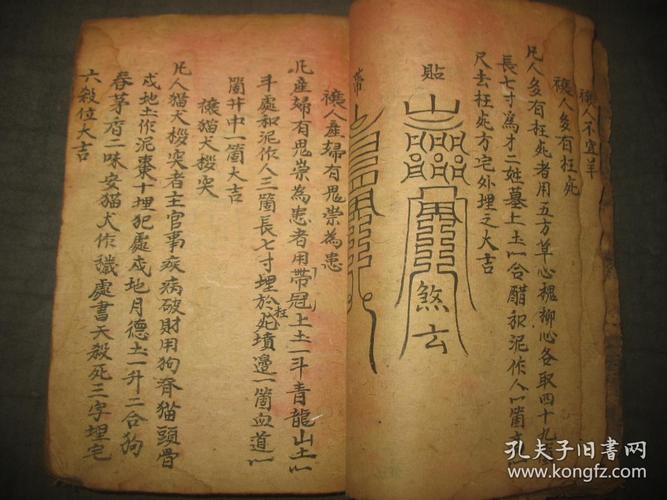 禳人不宜羊
禳人多有枉死
凡人多有枉死者用五方草心槐柳心各取四十九
長七寸為才二姓墓上土一合醋和泥作人一箇
尺去枉死方宅外埋之大吉
貼
煞去
帶
禳人產婦有鬼祟為患
凡產婦有鬼祟為患者用帶冠上土一斗青龍山土一
斗處和泥作人三箇長七寸埋於枉死墳邊一箇血道一
箇井中一箇大吉
禳猫犬拶突
凡人猫犬拶突者主官事疾病破財用狗脊猫頭骨
戍地土作泥棗十埋犯處戍地月德土一升二合狗
春茅香二味安猫犬作禨處書天殺死三字埋宅
六殺位大吉
孔夫子旧书网
www.kongfz.com